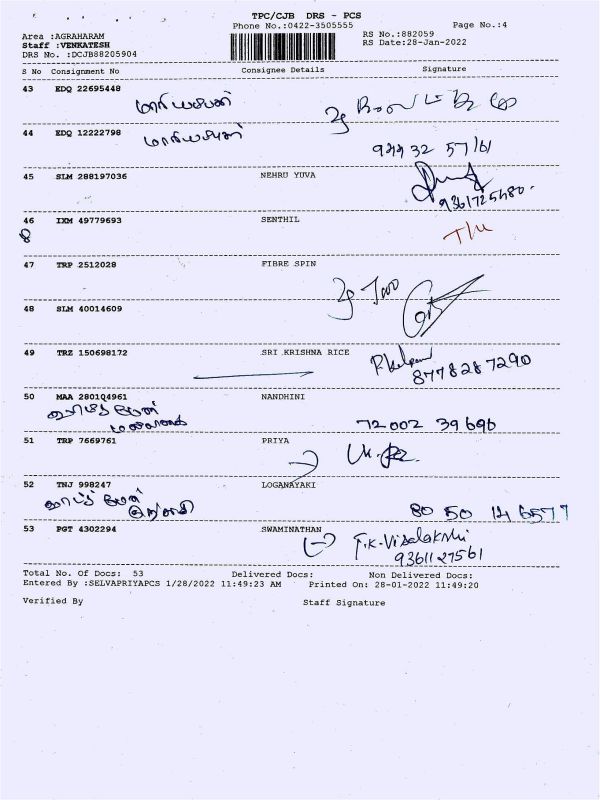 TPC/CJB DRS - PCS
Phone No.:0422-3505555
Page No.:4
Area :AGRAHARAM
RS No.:882059
Staff :VENKATESH
RS Date:28-Jan-2022
DRS No. :DCJB88205904
S No Consignment No Consignee Details Signature
43 EDQ 22695448
44 EDQ 12222798
45 SLM 288197036 NEHRU YUVA
46 IXM 49779693 SENTHIL
47 TRP 2512028 FIBRE SPIN
48 SLM 40014609
49 TRZ 150698172 SRI KRISHNA RICE
8778287290
50 MAA 280104961 NANDHINI
72002 39696
51 TRP 7669761 PRIYA
52 TNJ 998247 LOGANAYAKI
80 50 14 6577
53 PGT 4302294 SWAMINATHAN
T.K.Visalakshi
9361127561
Total No. Of Docs: 53 Delivered Docs: Non Delivered Docs:
Entered By :SELVAPRIYAPCS 1/28/2022 11:49:23 AM Printed On: 28-01-2022 11:49:20
Verified By Staff Signature